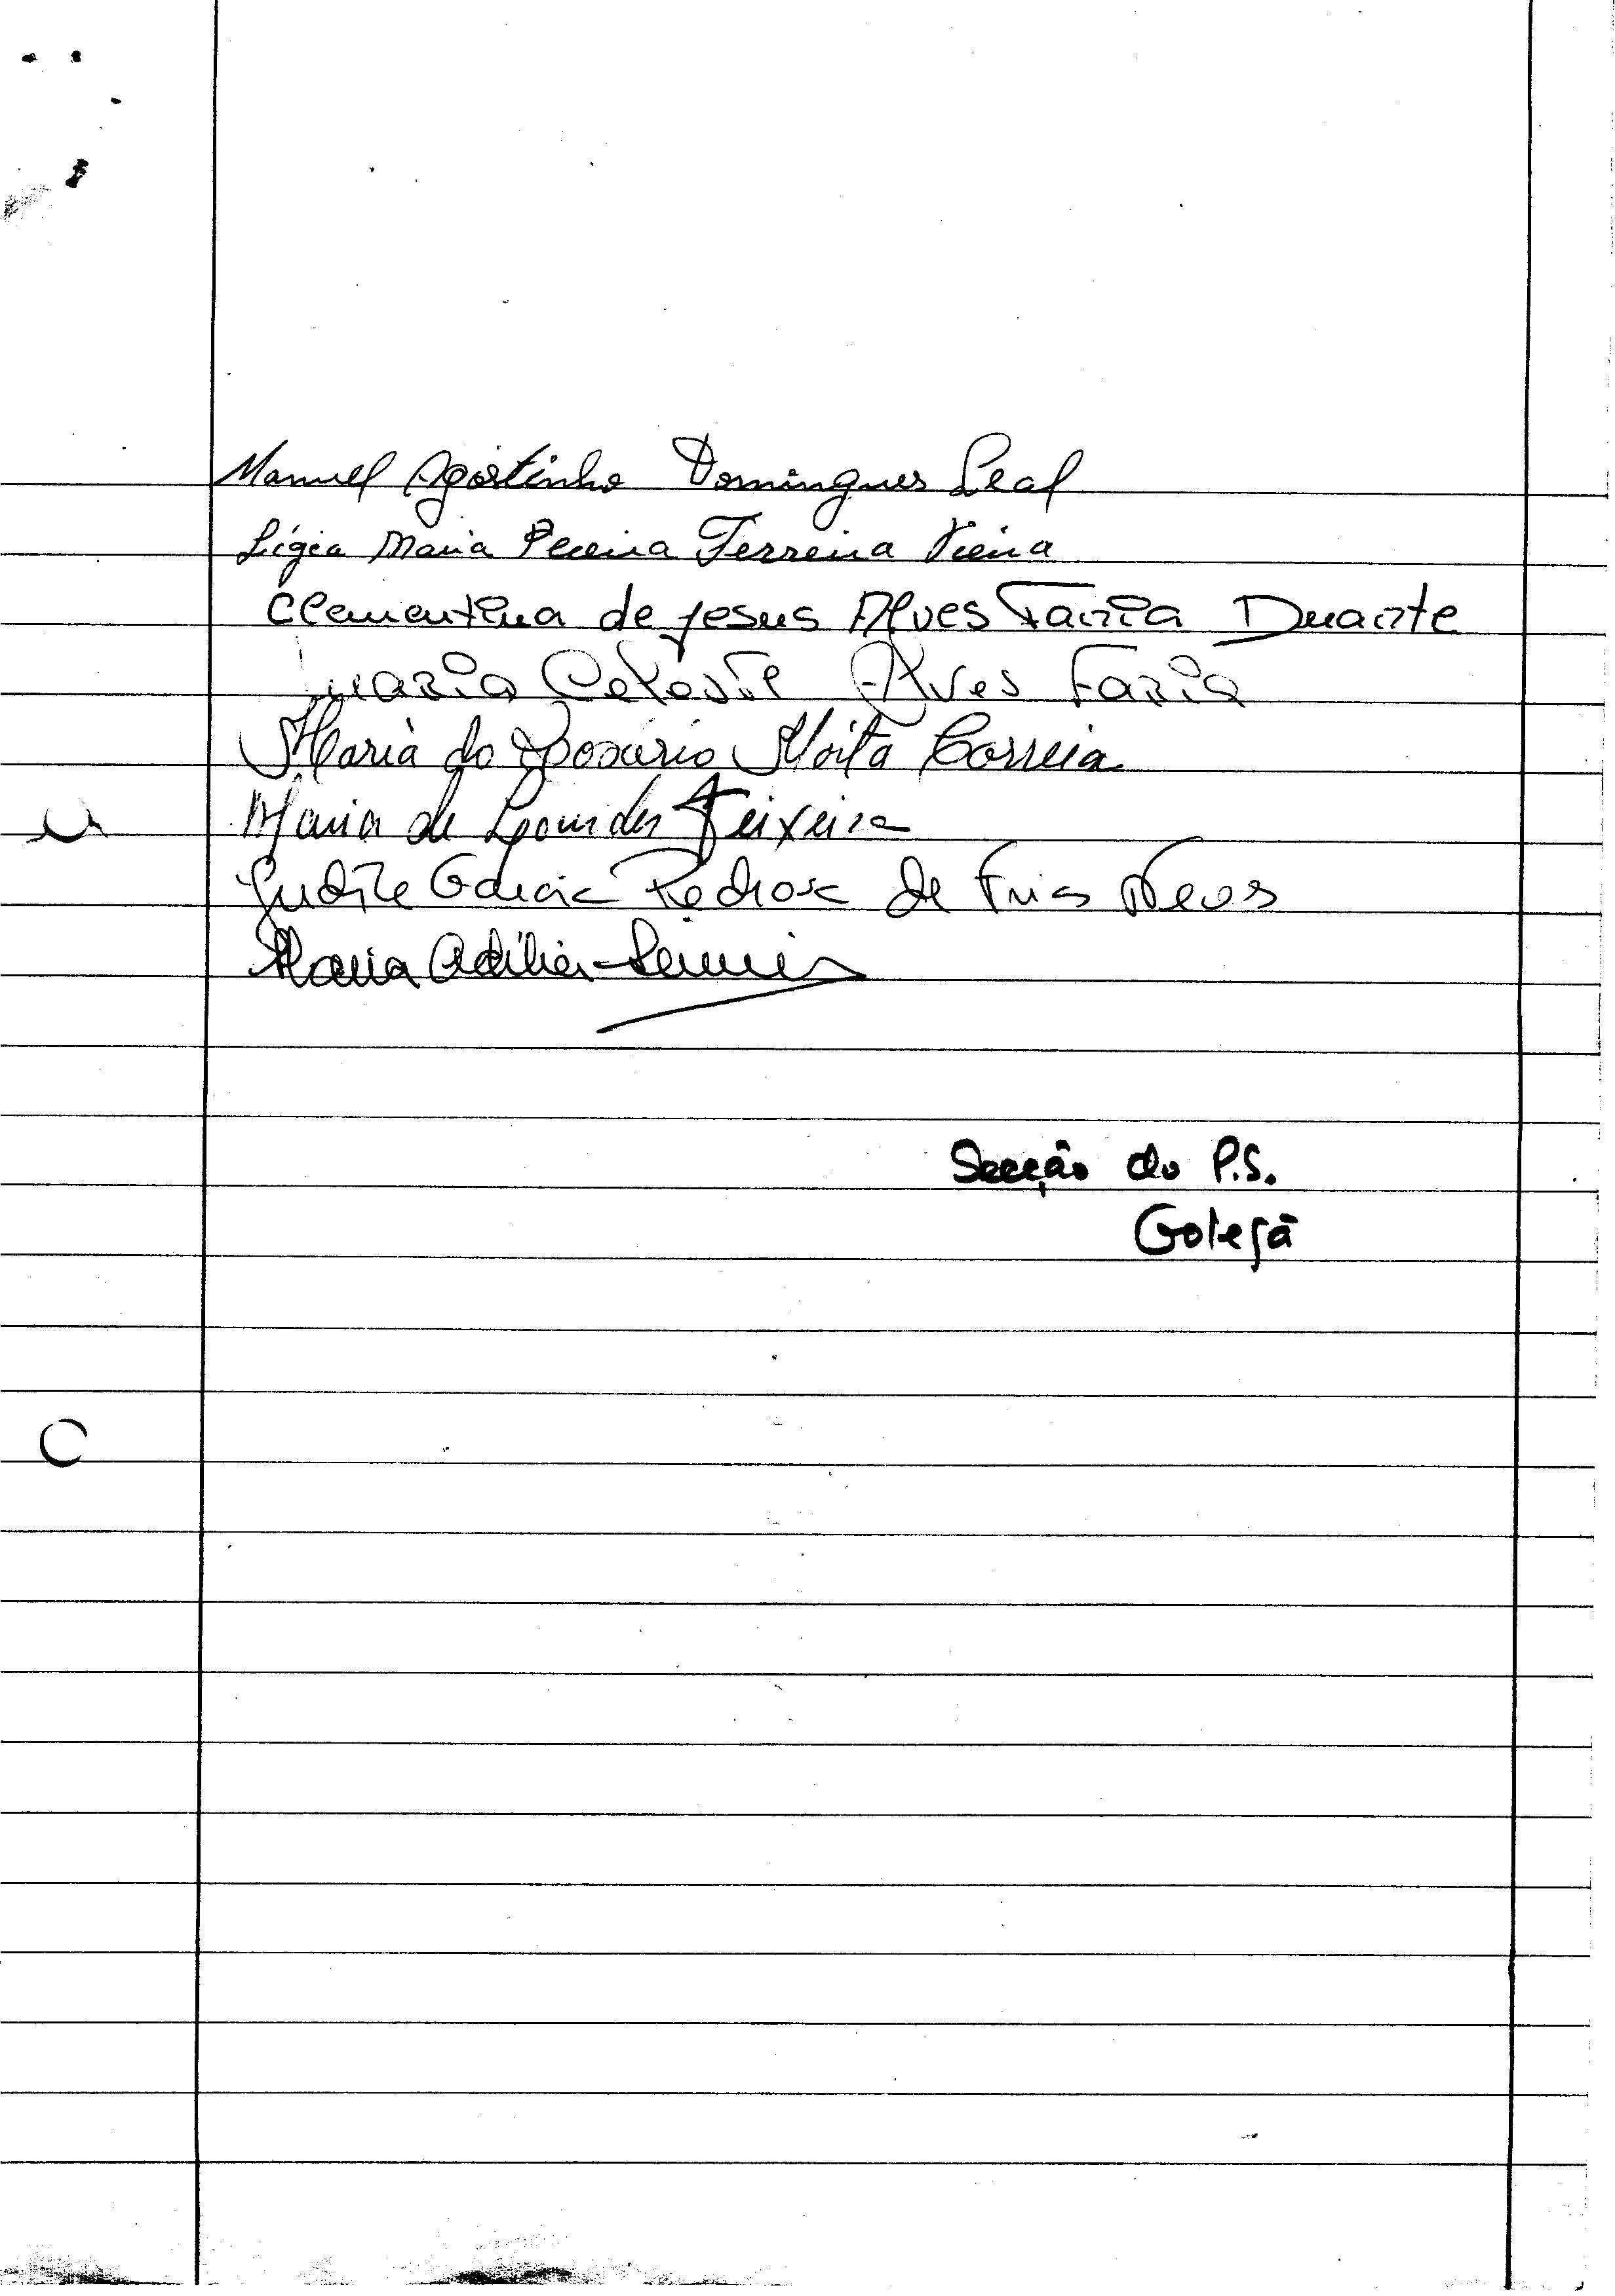 Manuel Agostinho Domingues Leal
Lígia Maria Pereira Ferreira Vieira
Clementina de Jesus Alves Faria Duarte
Maria Celeste Alves Faria
Maria do Rosário Moita Correia
Maria de Lourdes Teixeira
Judite Garcia Pedrosa de Frias
Maria Adília
Secção do P.S.
Golegã